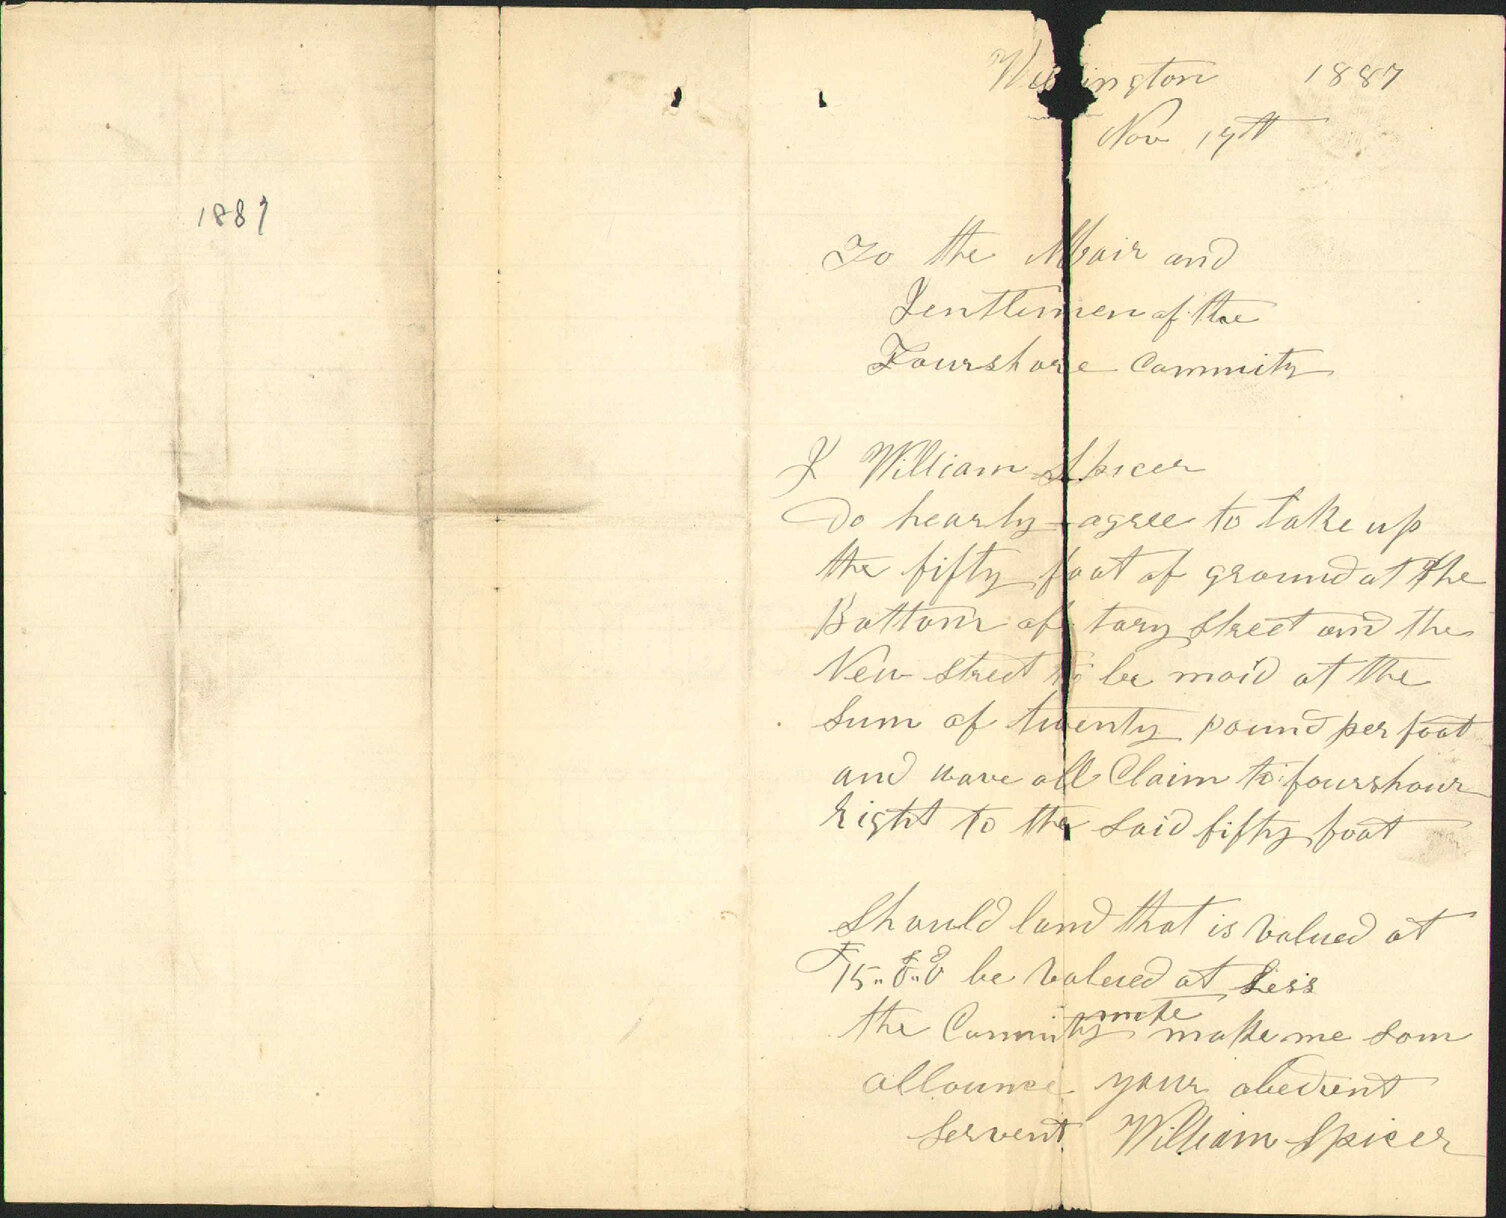 1887
Wellington 1887
Nov 17th
To the Mair and
Jentlemen of the
Fourshore Committy
I William Spicer
Do hearly agree to take up
the fifty foot of ground at the
Bottom of tory Street and the
New Street to be maid at the
Sum of twenty pound per foot
and wave all Claim to fourshour
right to the said fifty foot
Should land that is valued at
£15..0..0 be valued at Less
the Committy make me som
allounce your obedient
Servent William Spicer